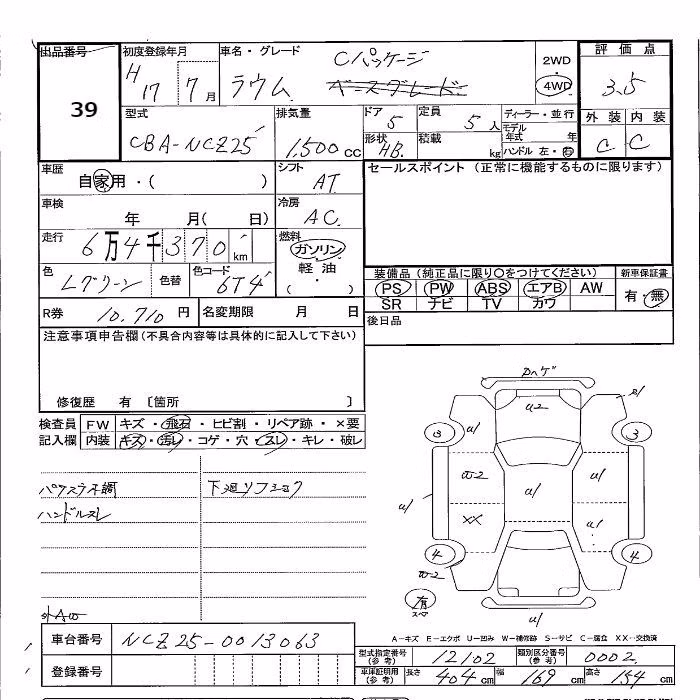 出品番号 初度登録年月 車名・グレード Cパッケージ 2WD 評価点
39 H17 7月 ラウム ベースグレード 4WD 3.5
型式 排気量 ドア 定員 ディーラー・並行 外装 内装
CBA-NCZ25 1,500cc 5 5人 モデル年式 年 C C
形状 HB. 積載 kg ハンドル 左・右
車歴 自家用・( ) シフト AT セールスポイント (正常に機能するものに限ります)
車検 年 月( 日) 冷房 AC.
走行 6万4千370km 燃料 ガソリン・軽油・( )
色 Lグリーン 色替 色コード 6T4 装備品 (純正品に限り○をつけてください) 新車保証書
PS PW ABS エアB AW 有・無
SR ナビ TV カワ
R券 10,710円 名変期限 月 日 後日品
注意事項申告欄 (不具合内容等は具体的に記入して下さい)
修復歴 有 〔箇所 〕
検査員記入欄 FW キズ・飛石・ヒビ割・リペア跡・×要
内装 キズ・汚レ・コゲ・穴・スレ・キレ・破レ
下廻リ
ハンドルスレ
U2
U1 U1
3 3
W2 U1 U1
U1
XX U1
4 4
W2
有
U1
A-キズ E-エクボ U-凹み W-補修跡 S-サビ C-腐食 XX-交換済
車台番号 NCZ25-0013063
型式指定番号(参考) 12102 類別区分番号(参考) 0002
登録番号
車庫証明用(参考) 長さ 404cm 幅 169cm 高さ 154cm